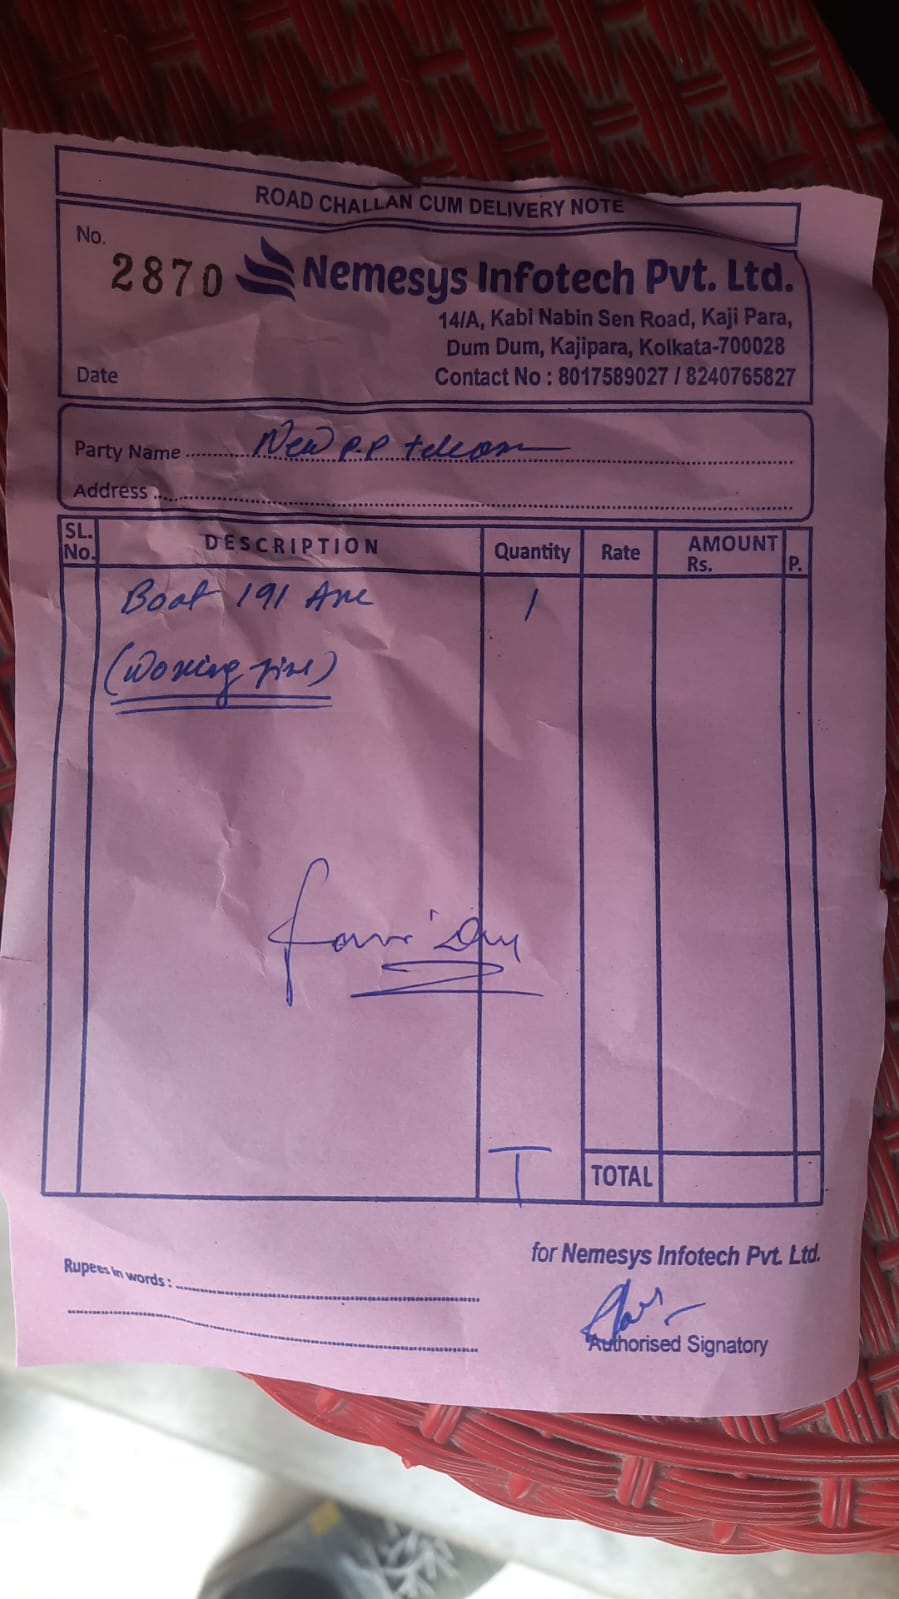 ROAD CHALLAN CUM DELIVERY NOTE
No.
2870
Nemesys Infotech Pvt. Ltd.
14/A, Kabi Nabin Sen Road, Kaji Para,
Dum Dum, Kajipara, Kolkata-700028
Date
Contact No : 8017589027 / 8240765827
Party Name New P.P telecom
Address
SL. No. DESCRIPTION Quantity Rate AMOUNT Rs. P.
Boat 191 1
(Working fine)
TOTAL
for Nemesys Infotech Pvt. Ltd.
Rupees in words :
Authorised Signatory